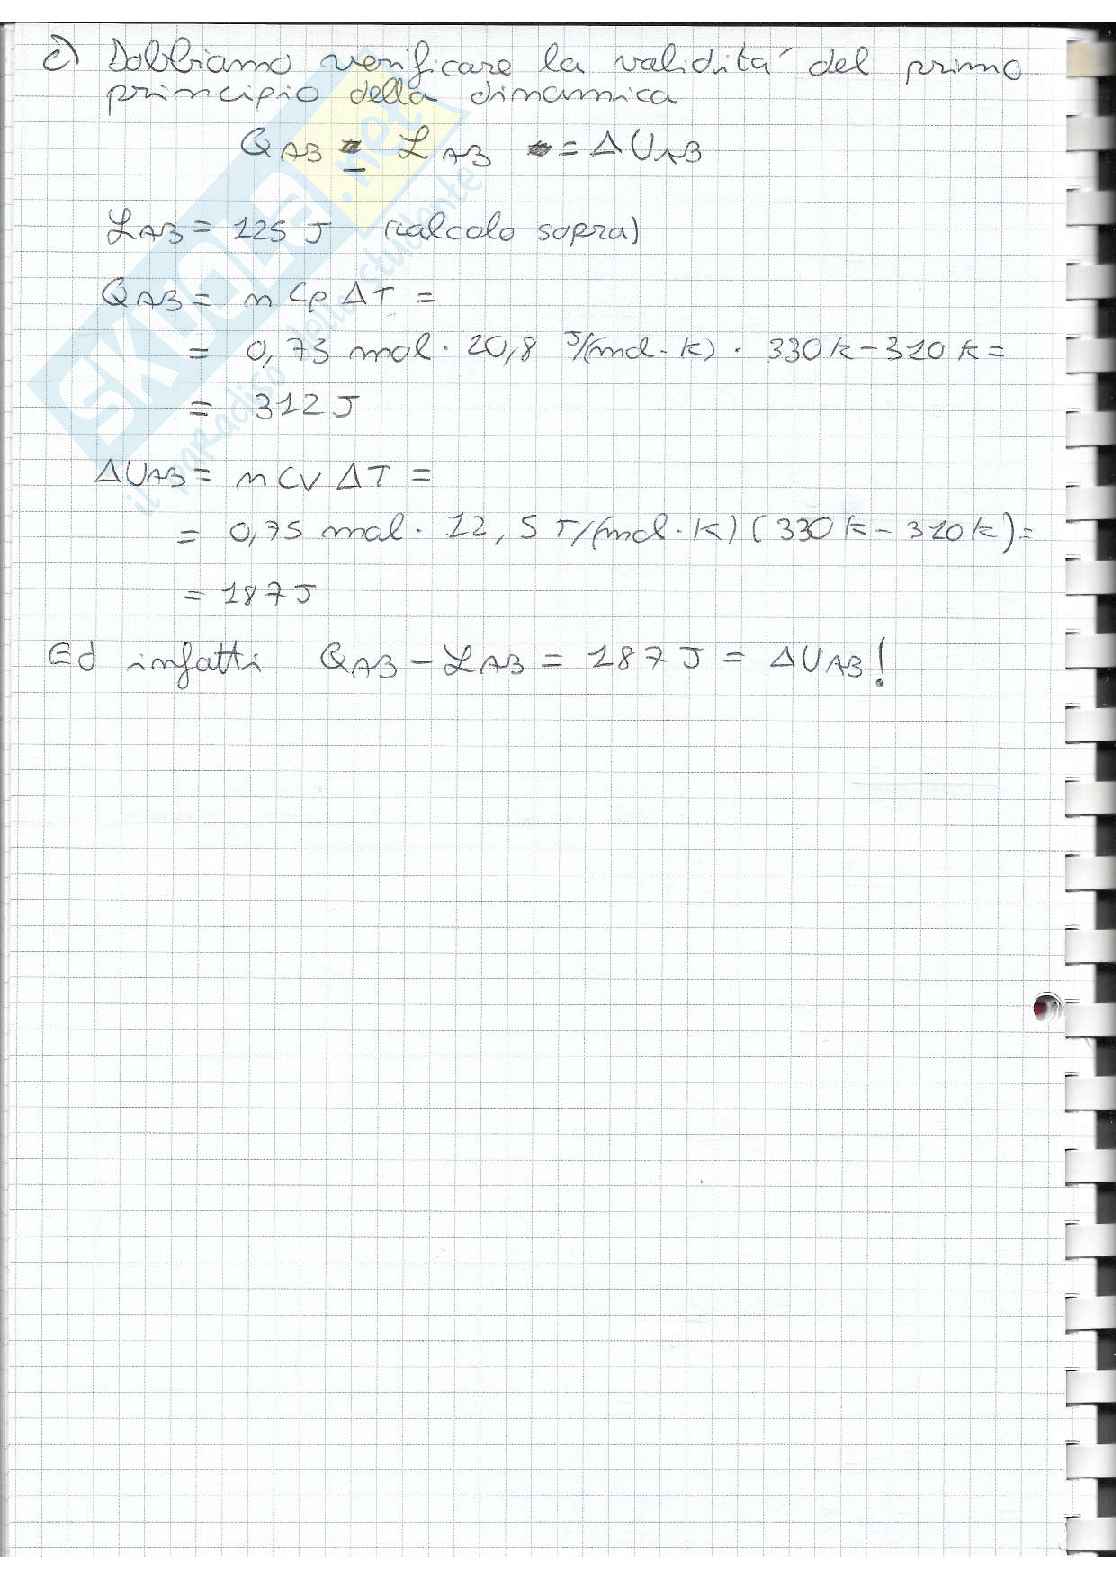 c) Dobbiamo verificare la validità del primo
principio della dinamica
Q_AB - L_AB = ΔU_AB
L_AB = 125 J (calcolo sopra)
Q_AB = n Cp ΔT =
= 0,75 mol · 20,8 J/(mol·K) · 330 k - 310 k =
= 312 J
ΔU_AB = n Cv ΔT =
= 0,75 mol · 12,5 J/(mol·K) (330 k - 310 k) =
= 187 J
Ed infatti Q_AB - L_AB = 187 J = ΔU_AB!
SKUOLA.net
il paradiso dello studente